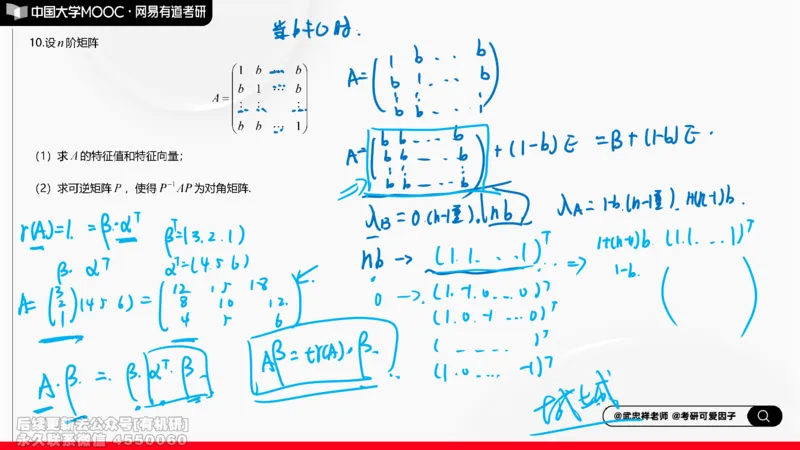 中国大学MOOC·网易有道考研
当b≠0时.
10.设n阶矩阵
A= ( 1 b ⋯ b
b 1 ⋯ b
⋮ ⋮ ⋮
b b ⋯ 1 )
(1) 求A的特征值和特征向量;
(2) 求可逆矩阵P，使得P⁻¹AP为对角矩阵.
A= ( 1 b ... b
b 1 ... b
⋮ ⋮ ⋮
b b ... 1 )
A= ( b b ... b
b b ... b
⋮ ⋮ ⋮
b b ... b ) +(1-b)E =B+(1-b)E.
λB=0.(n-1重). nb
λA=1-b.(n-1重). 1+(n-1)b.
nb → (1.1. ... 1)ᵀ
⇒ 1+(n-1)b (1.1. ... 1)ᵀ
1-b. ( )
0 → (1.-1.0. ... 0)ᵀ
(1.0.-1 ... 0)ᵀ
( ... )ᵀ
(1.0. ... -1)ᵀ
r(A)=1. =β·αᵀ
βᵀ=(3.2.1)
β. αᵀ
αᵀ=(4 5 6)
A= ( 3
2
1 ) (4 5 6) = ( 12 15 18
8 10 12.
4 5 6 )
A.β. = β.αᵀ.β
Aβ=tr(A).β
@武忠祥老师 @考研可爱因子
后续更新去公众号[有机研]
永久联系微信 4550060